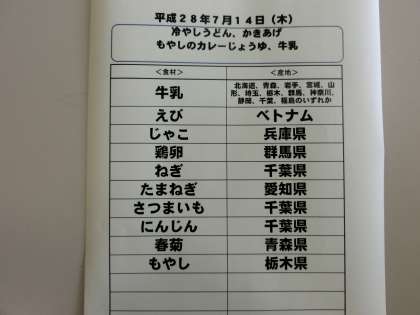 平成28年7月14日（木）
冷やしうどん、かきあげ
もやしのカレーじょうゆ、牛乳
＜食材＞ ＜産地＞
牛乳 北海道、青森、岩手、宮城、山
形、埼玉、栃木、群馬、神奈川、
静岡、千葉、福島のいずれか
えび ベトナム
じゃこ 兵庫県
鶏卵 群馬県
ねぎ 千葉県
たまねぎ 愛知県
さつまいも 千葉県
にんじん 千葉県
春菊 青森県
もやし 栃木県